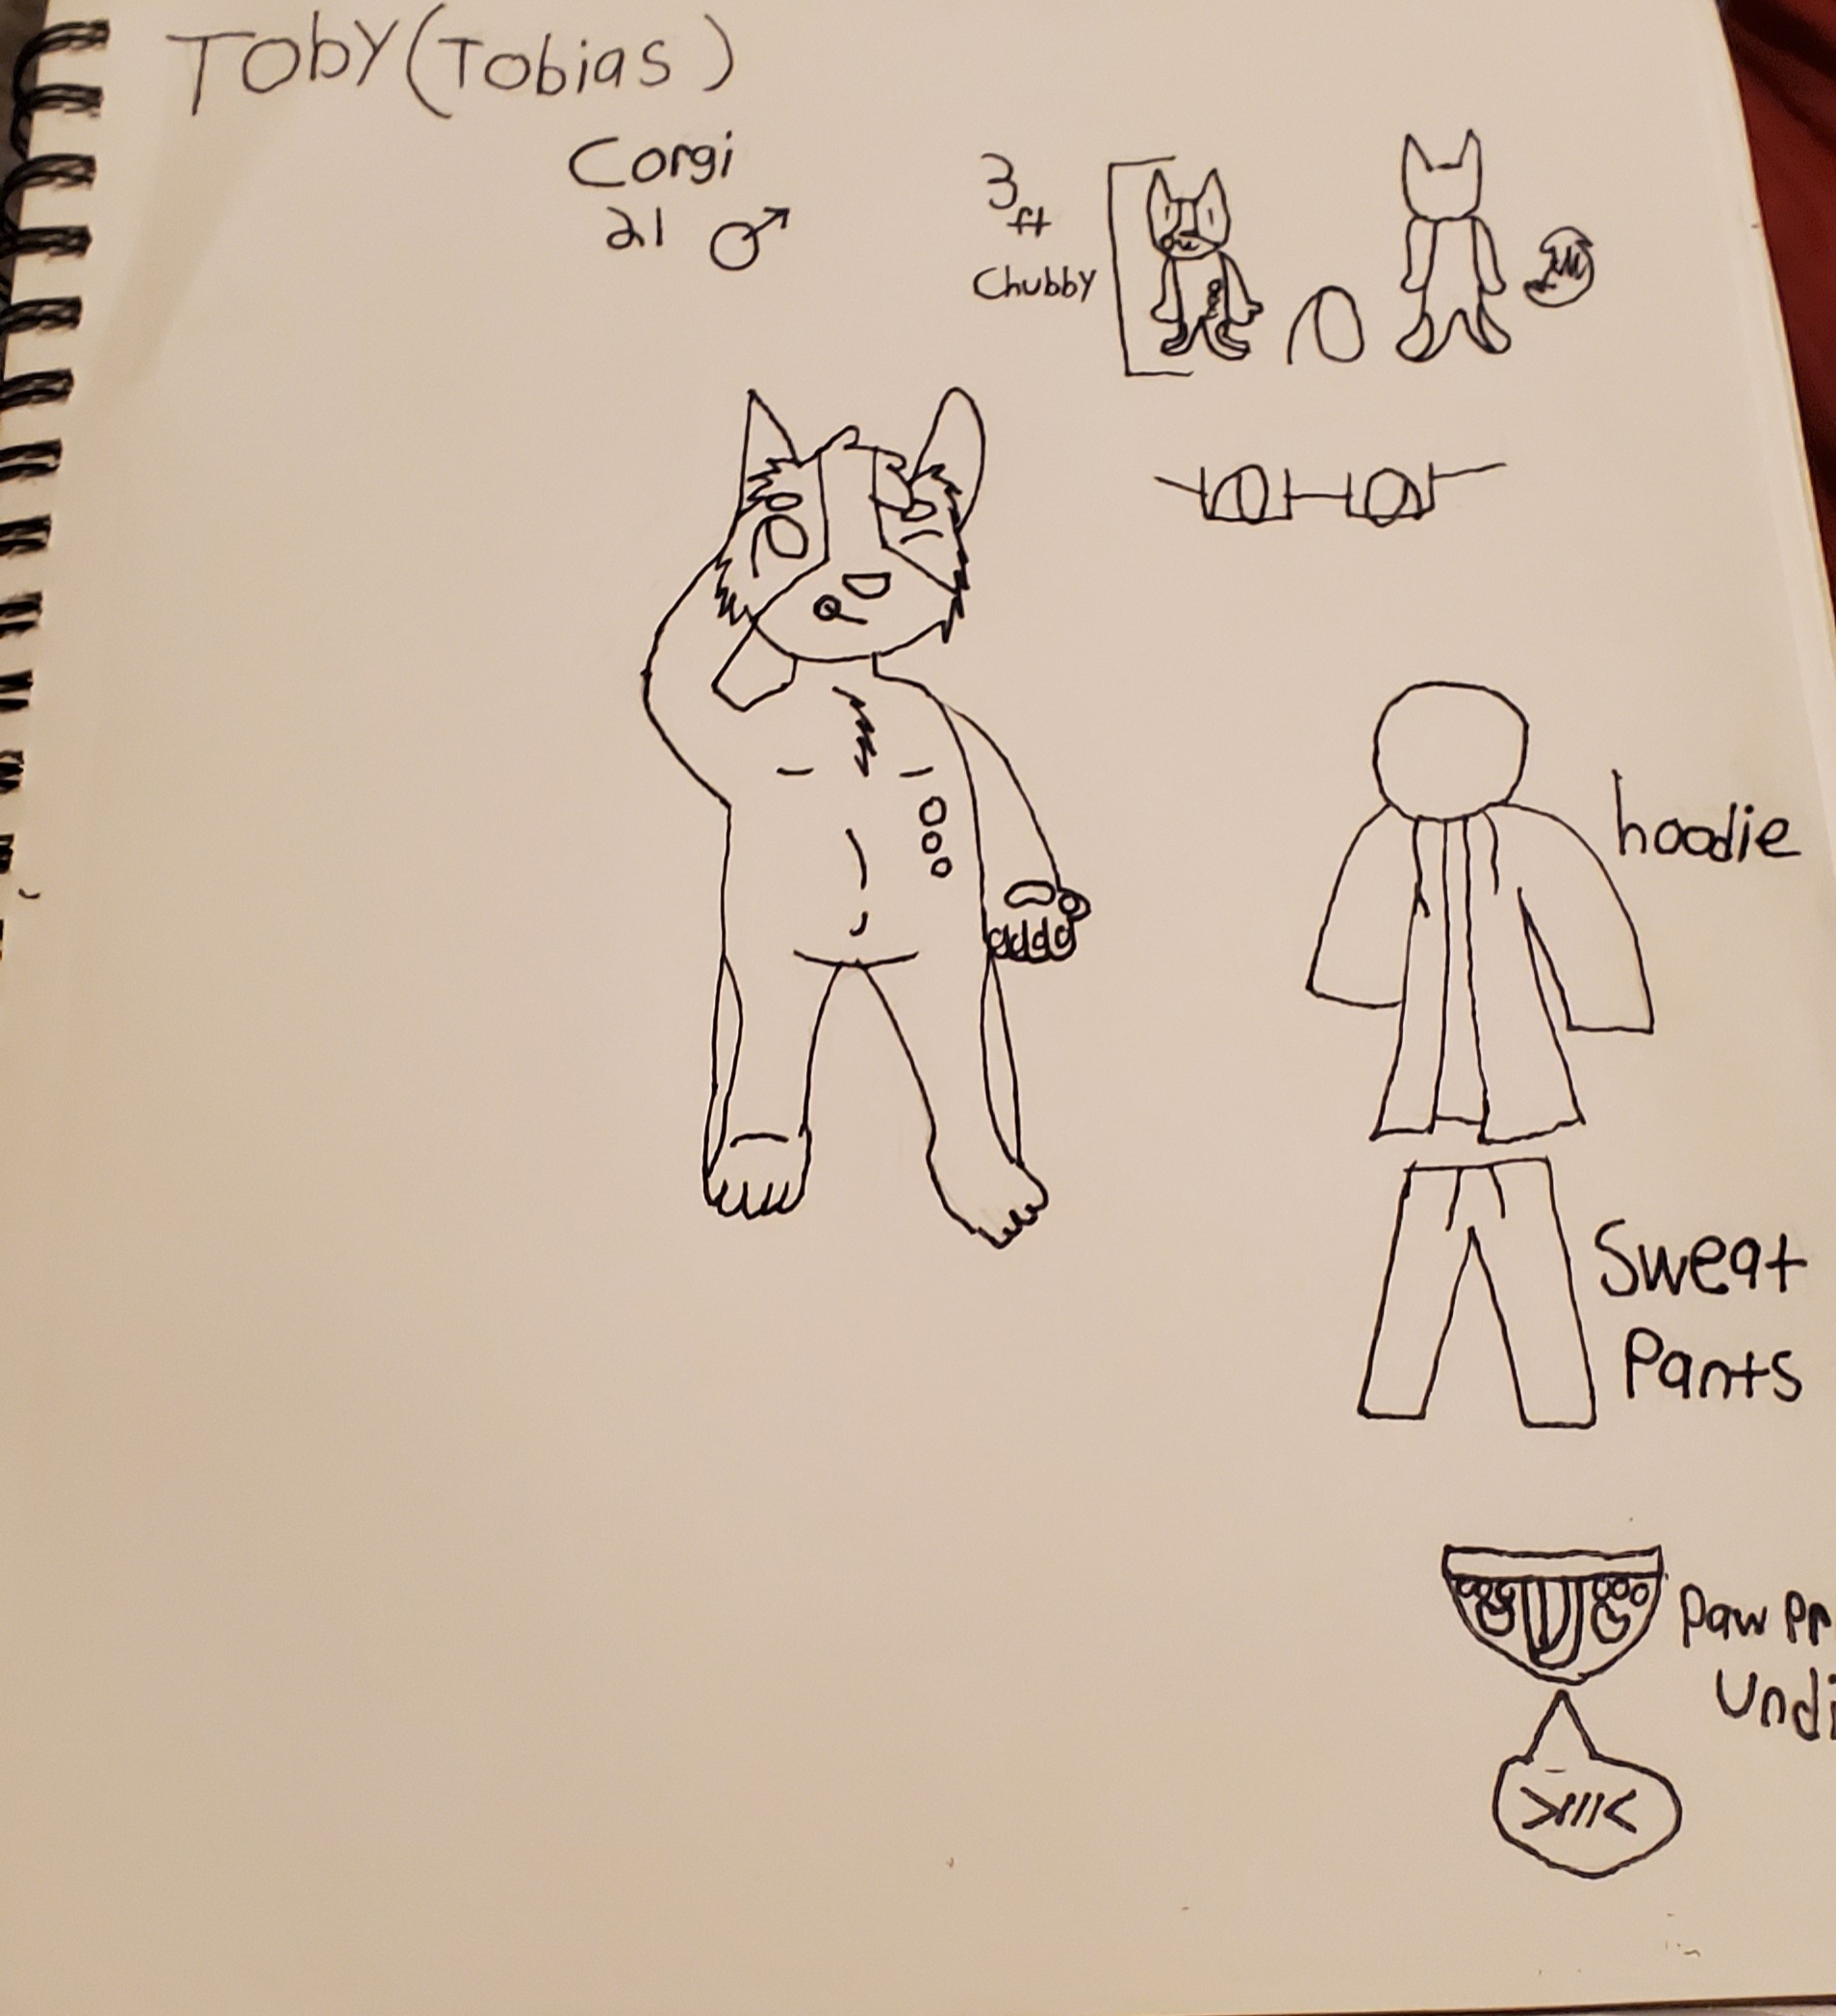 TOBY (Tobias)
Corgi
21 ♂
3 ft
Chubby
hoodie
Sweat
Pants
Paw Pr
Undi
>///<